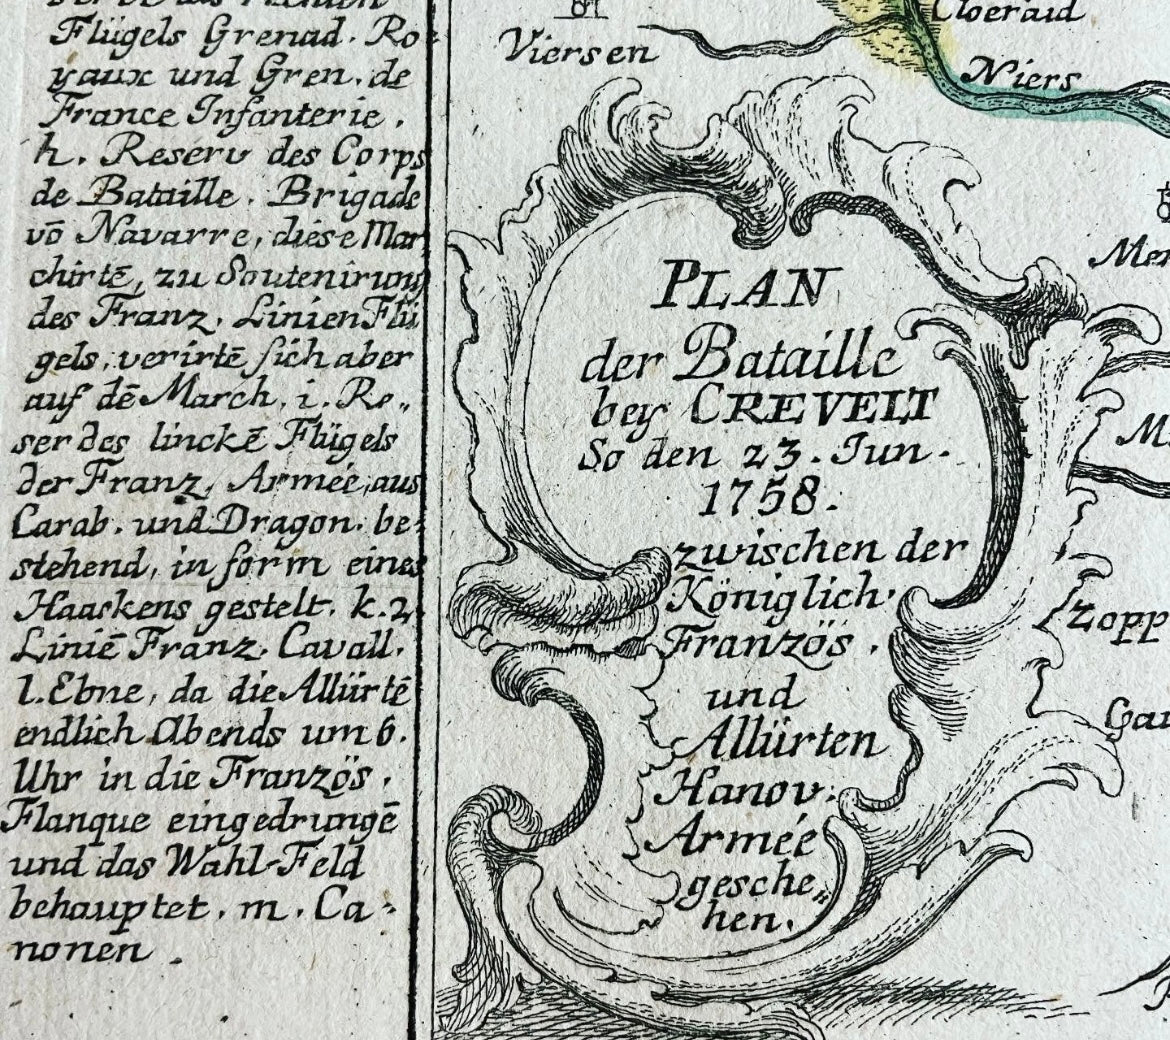 Flügels Grenad. Ro-
yaux und Gren. de
France Infanterie.
h. Reserv des Corps
de Bataille. Brigade
vō Navarre, diese Mar
chirtē, zu Soutenirung
des Franz. Linien Flü
gels, verirtē sich aber
auf dē March, i. Re„
ser des linckē Flügels
der Franz. Armée, aus
Carab. und Dragon. be-
stehend, in form eines
Haaskens gestelt. k. 2.
Liniē Franz. Cavall.
l. Ebne, da die Allürtē
endlich Abends um 6.
Uhr in die Französ.
Flanque eingedrungē
und das Wahl-Feld
behauptet. m. Ca-
nonen.
Viersen
Cloeraid
Niers
PLAN
der Bataille
bey CREVELT
So den 23. Jun.
1758.
zwischen der
Königlich.
Französ.
und
Allürten
Hanov.
Armée
gesche„
hen.
Mer
M
Zopp
Gar